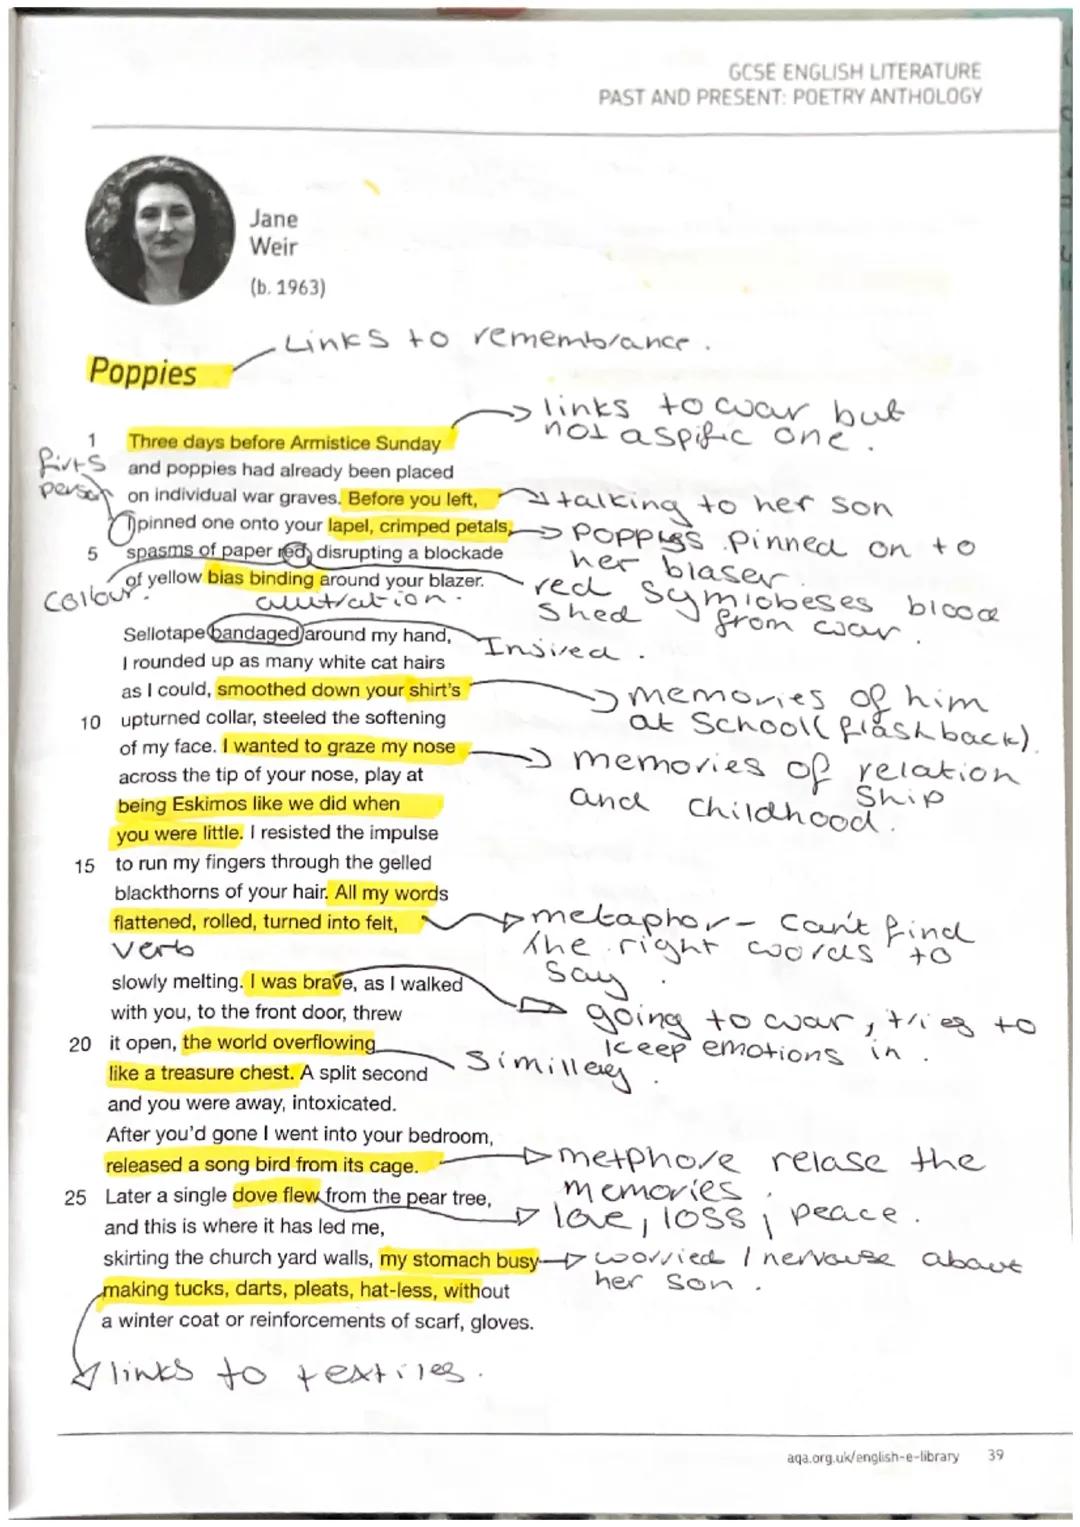 GCSE ENGLISH LITERATURE
PAST AND PRESENT: POETRY ANTHOLOGY
Jane
Weir
(b. 1963)
Links to remembrance.
Poppies
links to war but
not a spific one.
1 Three days before Armistice Sunday
firts
person
and poppies had already been placed
on individual war graves. Before you left,
talking to her son
I pinned one onto your lapel, crimped petals,
Poppies pinned on to
her blaser.
5 spasms of paper red, disrupting a blockade
of yellow bias binding around your blazer.
Collour.
red symiobeses blood
shed from war.
Sellotape bandaged around my hand,
I rounded up as many white cat hairs
as I could, smoothed down your shirt's
memories of him
at School (flashback).
10 upturned collar, steeled the softening
of my face. I wanted to graze my nose
memories of relation
ship
and childhood.
across the tip of your nose, play at
being Eskimos like we did when
you were little. I resisted the impulse
15 to run my fingers through the gelled
blackthorns of your hair. All my words
flattened, rolled, turned into felt,
metaphor - can't find
the right words to
say.
verb
slowly melting. I was brave, as I walked
going to war, tries to
keep emotions in.
with you, to the front door, threw
20 it open, the world overflowing
like a treasure chest. A split second
and you were away, intoxicated.
After you'd gone I went into your bedroom,
released a song bird from its cage.
metphore relase the
memories.
25 Later a single dove flew from the pear tree,
love, loss, peace.
and this is where it has led me,
skirting the church yard walls, my stomach busy
worried / nervouse about
her son.
making tucks, darts, pleats, hat-less, without
a winter coat or reinforcements of scarf, gloves.
links to textiles.
aqa.org.uk/english-e-library 39